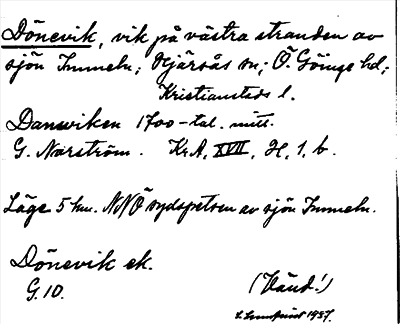 Dönevik, vik på västra stranden av
sjön Immeln; Hjärsås sn; Ö. Göinge hd;
Kristianstads l.
Danswiken 1700-tal. mitt.
G. Norström. Kr.A, XVII, H, 1, b.
Läge 5 km. NNÖ sydspetsen av sjön Immeln.
Dönevik ek.
G. 10.
(Vänd!)
1937.